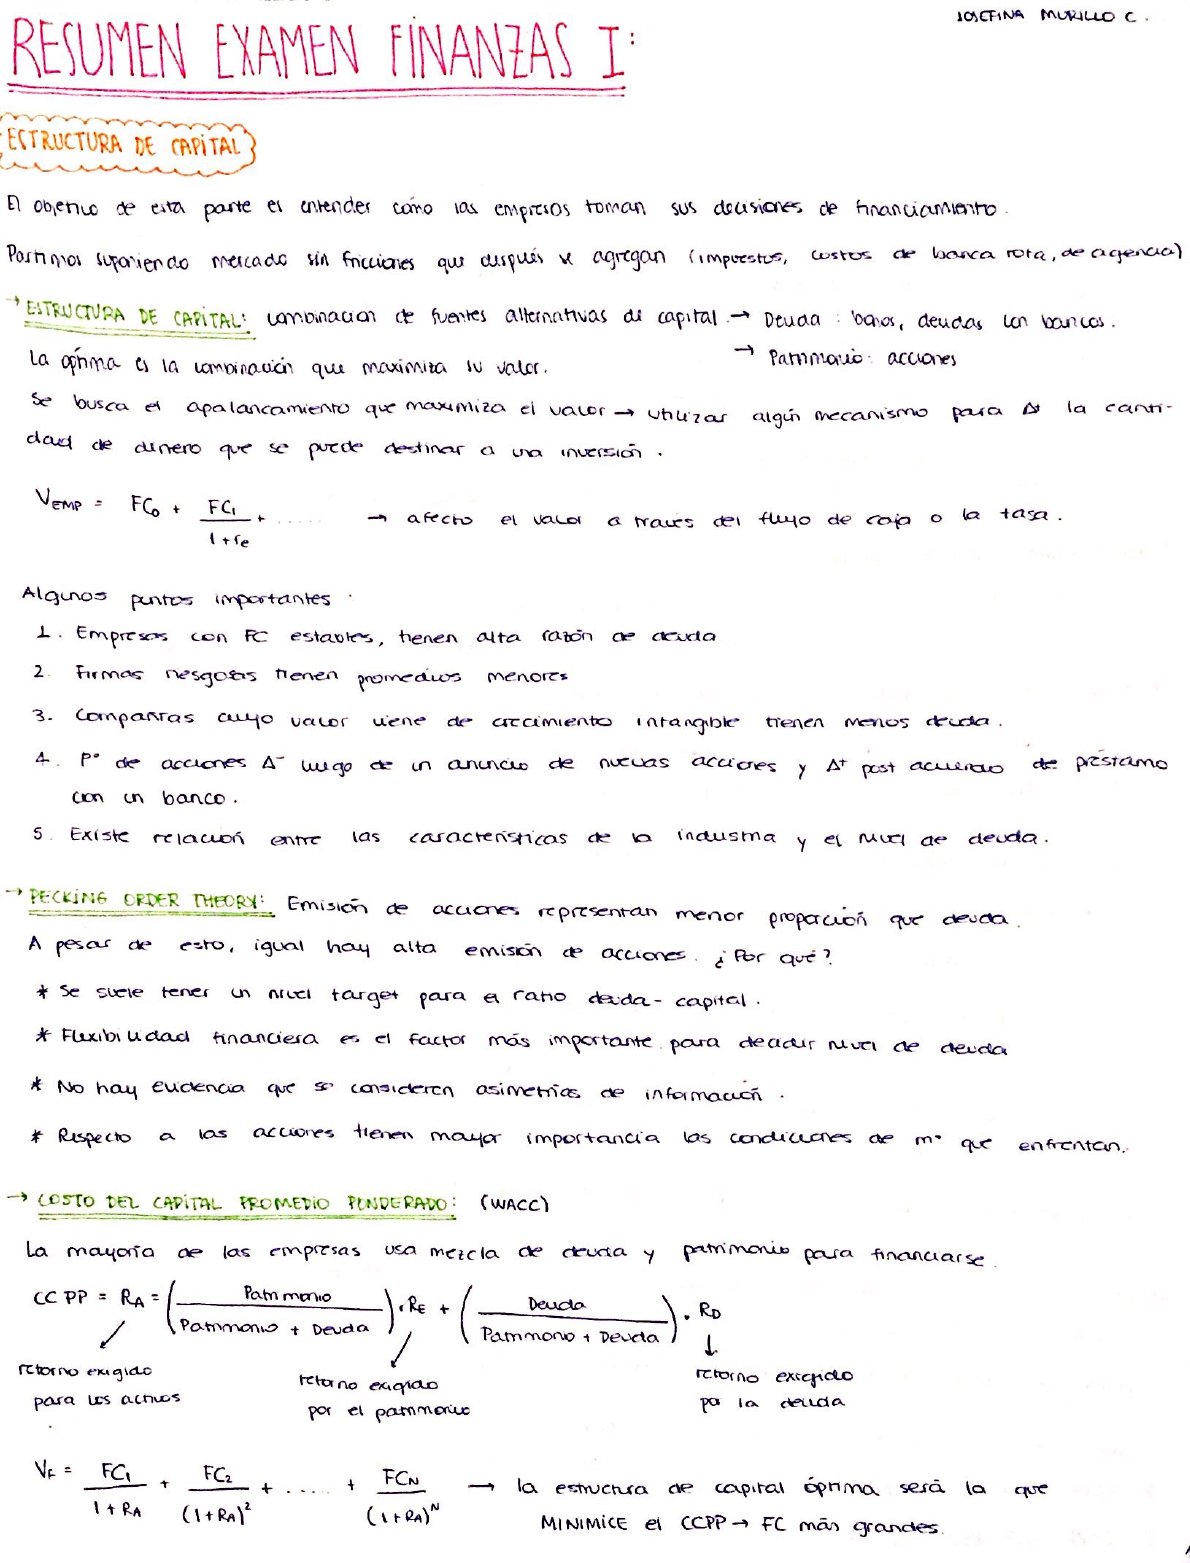 JOSEFINA MURILLO C.
RESUMEN EXAMEN FINANZAS I:
ESTRUCTURA DE CAPITAL
El objetivo de esta parte es entender cómo las empresas toman sus decisiones de financiamiento.
Partimos suponiendo mercado sin fricciones que después se agregan (impuestos, costos de banca rota, de agencia)
→ ESTRUCTURA DE CAPITAL: combinacion de fuentes alternativas de capital. → Deuda : bonos, deudas con bancos.
La óptima es la combinación que maximiza su valor. → Patrimonio: acciones
Se busca el apalancamiento que maximiza el valor → utilizar algún mecanismo para Δ la canti-
dad de dinero que se puede destinar a una inversión.
V_EMP = FC₀ + FC₁/(1+re) + ...... → afecto el valor a traves del flujo de caja o la tasa.
Algunos puntos importantes:
1. Empresas con FC estables, tienen alta razón de deuda
2. Firmas riesgosas tienen promedios menores
3. Compañías cuyo valor viene de crecimiento intangible tienen menos deuda.
4. P° de acciones Δ⁻ luego de un anuncio de nuevas acciones y Δ⁺ post acuerdo de préstamo
con un banco.
5. Existe relación entre las características de la industria y el nivel de deuda.
→ PECKING ORDER THEORY: Emisión de acciones representan menor proporción que deuda.
A pesar de esto, igual hay alta emisión de acciones. ¿Por qué?
* Se suele tener un nivel target para el ratio deuda-capital.
* Flexibilidad financiera es el factor más importante para decidir nivel de deuda
* No hay evidencia que se consideren asimetrías de información.
* Respecto a las acciones tienen mayor importancia las condiciones de m° que enfrentan.
→ COSTO DEL CAPITAL PROMEDIO PONDERADO: (WACC)
La mayoría de las empresas usa mezcla de deuda y patrimonio para financiarse.
CCPP = R_A = (Patrimonio / (Patrimonio + Deuda)) · R_E + (Deuda / (Patrimonio + Deuda)) · R_D
retorno exigido para los activos
retorno exigido por el patrimonio
retorno exigido por la deuda
V_F = FC₁/(1+R_A) + FC₂/(1+R_A)² + ..... + FC_N/(1+R_A)^N → la estructura de capital óptima será la que
MINIMICE el CCPP → FC más grandes.